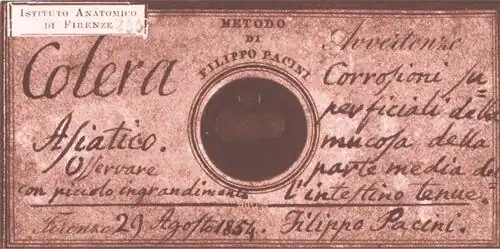 ISTITUTO ANATOMICO
DI FIRENZE
METODO
DI
FILIPPO PACINI
Colera
Asiatico.
Osservare
con piccolo ingrandimento
Avvertenze
Corrosioni su=
perficiali della
mucosa della
parte media del
l'intestino tenue.
Firenze 29 Agosto 1854. Filippo Pacini.